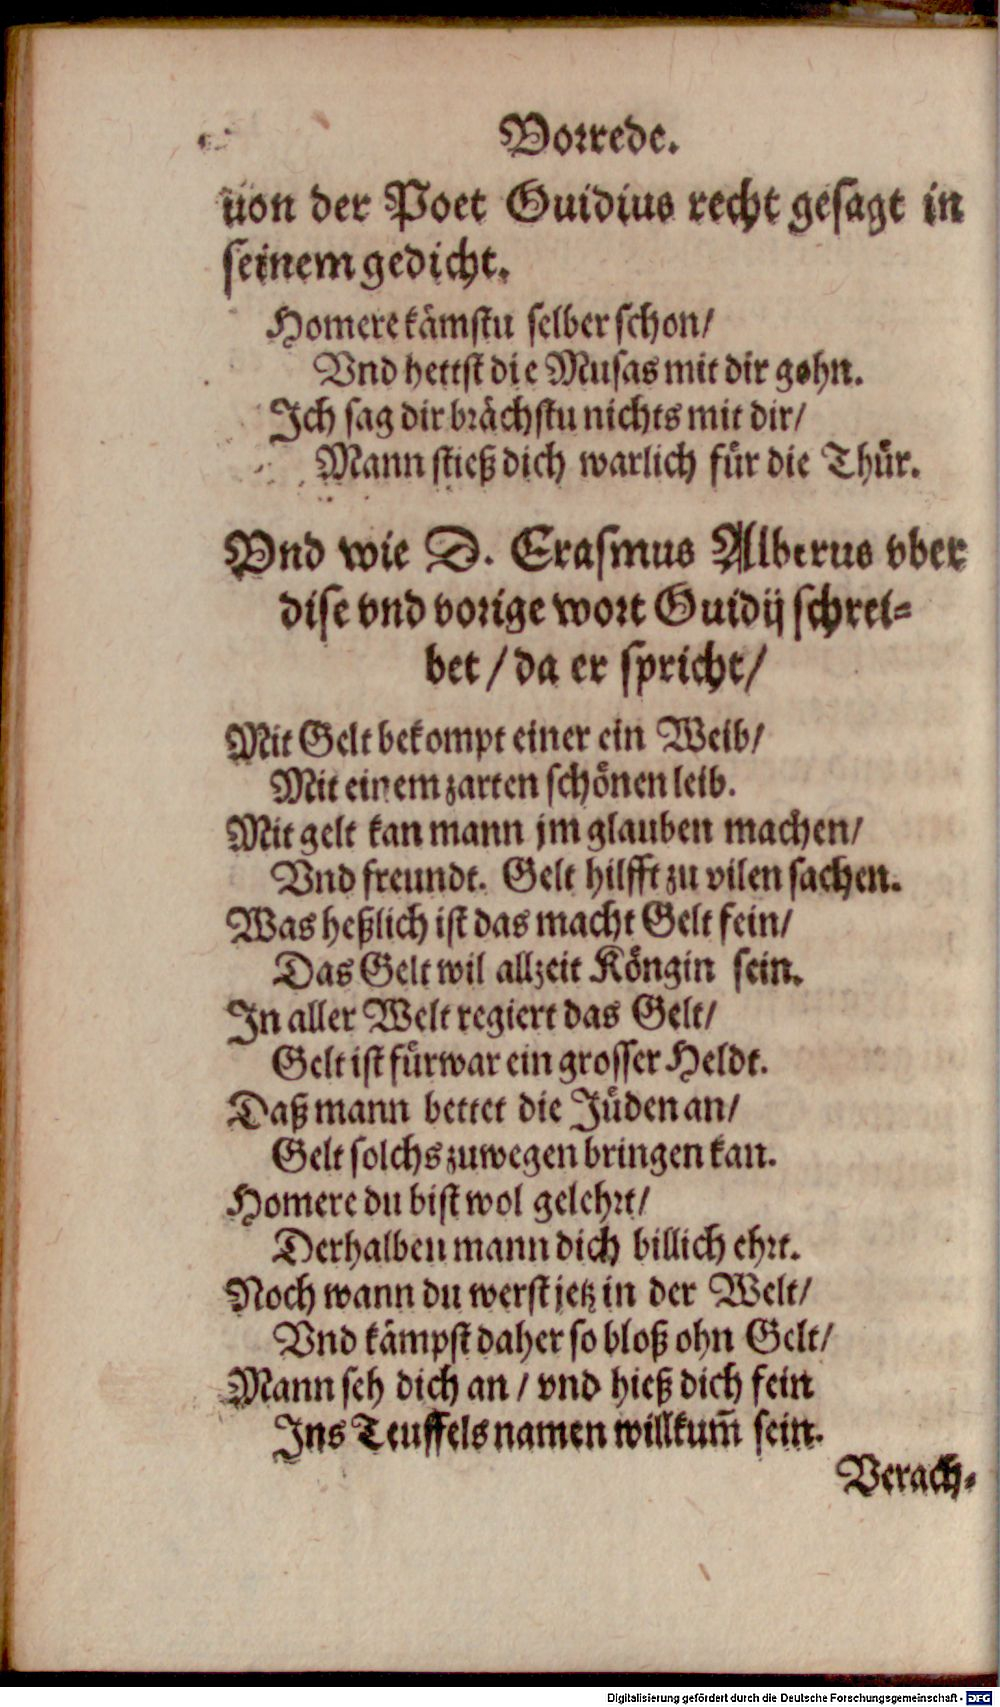 Vorrede.
uon der Poet Guidius recht gesagt in
seinem gedicht.
Homere kämstu selber schon/
Vnd hettst die Musas mit dir gohn.
Ich sag dir brächstu nichts mit dir/
Mann stieß dich warlich für die Thür.
Vnd wie D. Erasmus Alberus vber
dise vnd vorige wort Guidij schrei-
bet / da er spricht/
Mit Gelt bekompt einer ein Weib/
Mit einem zarten schönen leib.
Mit gelt kan mann jm glauben machen/
Vnd freundt. Gelt hilfft zu vilen sachen.
Was heßlich ist das macht Gelt fein/
Das Gelt wil allzeit Köngin sein.
In aller Welt regiert das Gelt/
Gelt ist fürwar ein grosser Heldt.
Daß mann bettet die Jüden an/
Gelt solchs zuwegen bringen kan.
Homere du bist wol gelehrt/
Derhalben mann dich billich ehrt.
Noch wann du werst jetz in der Welt/
Vnd kämpst daher so bloß ohn Gelt/
Mann seh dich an / vnd hieß dich fein
Ins Teuffels namen willkum̄ sein.
Verach-
Digitalisierung gefördert durch die Deutsche Forschungsgemeinschaft - DFG